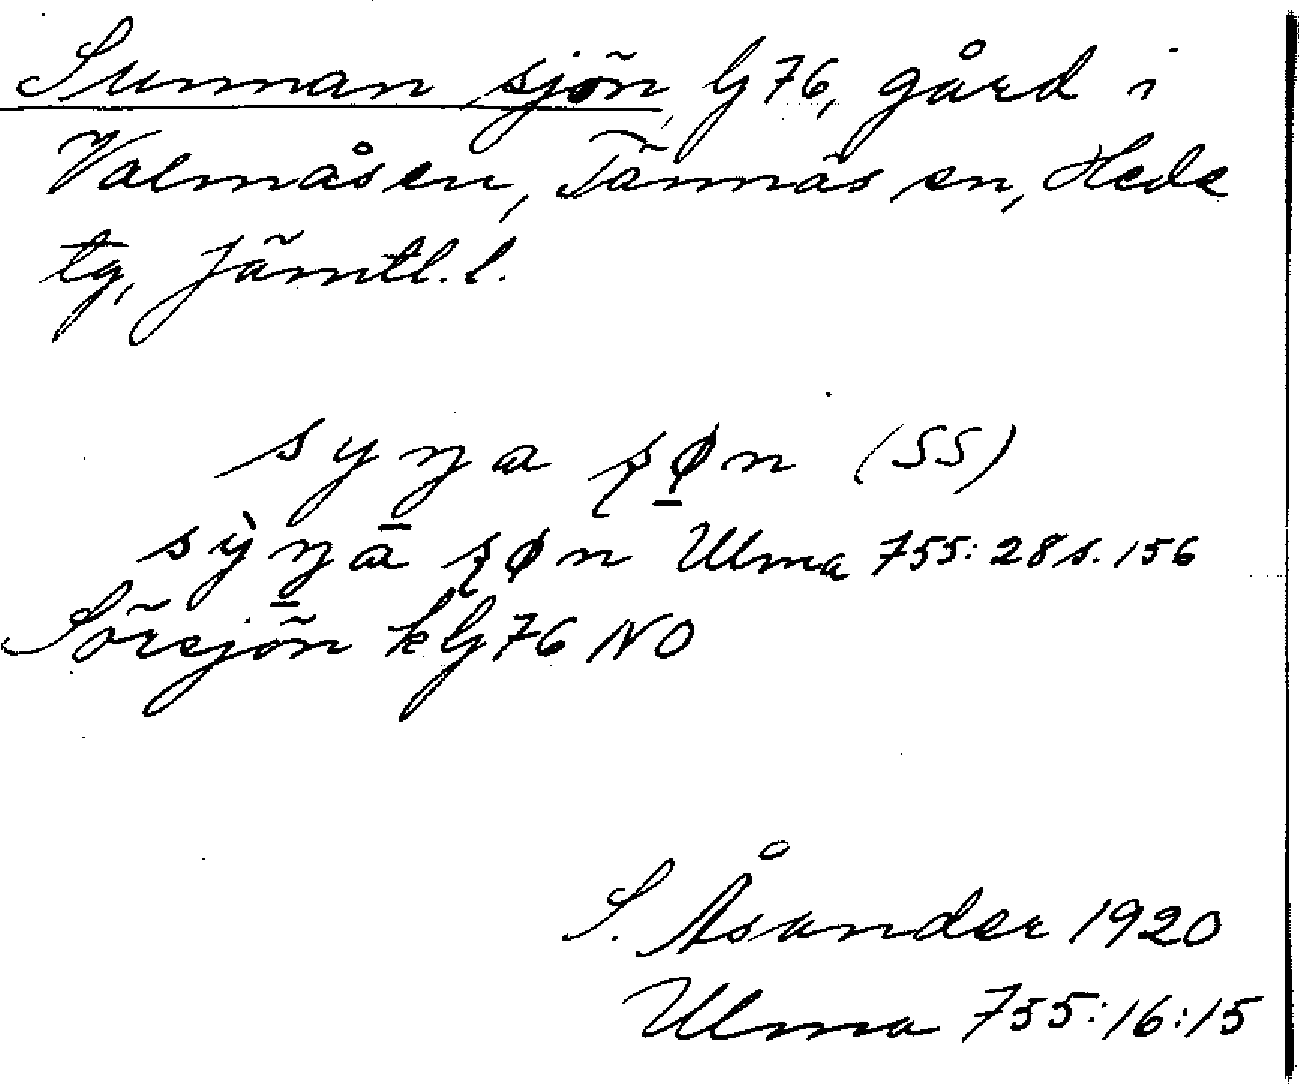 Sunnan sjön, lj 76, gård i
Valmåsen, Tännäs sn, Hede
tg, Jämtl. l.
syŋa ʂøn (SS)
sỳŋa ʂøn Ulma 755:28 s. 156
Sörsjön k lj 76 NO
S. Åsander 1920
Ulma 755:16:15